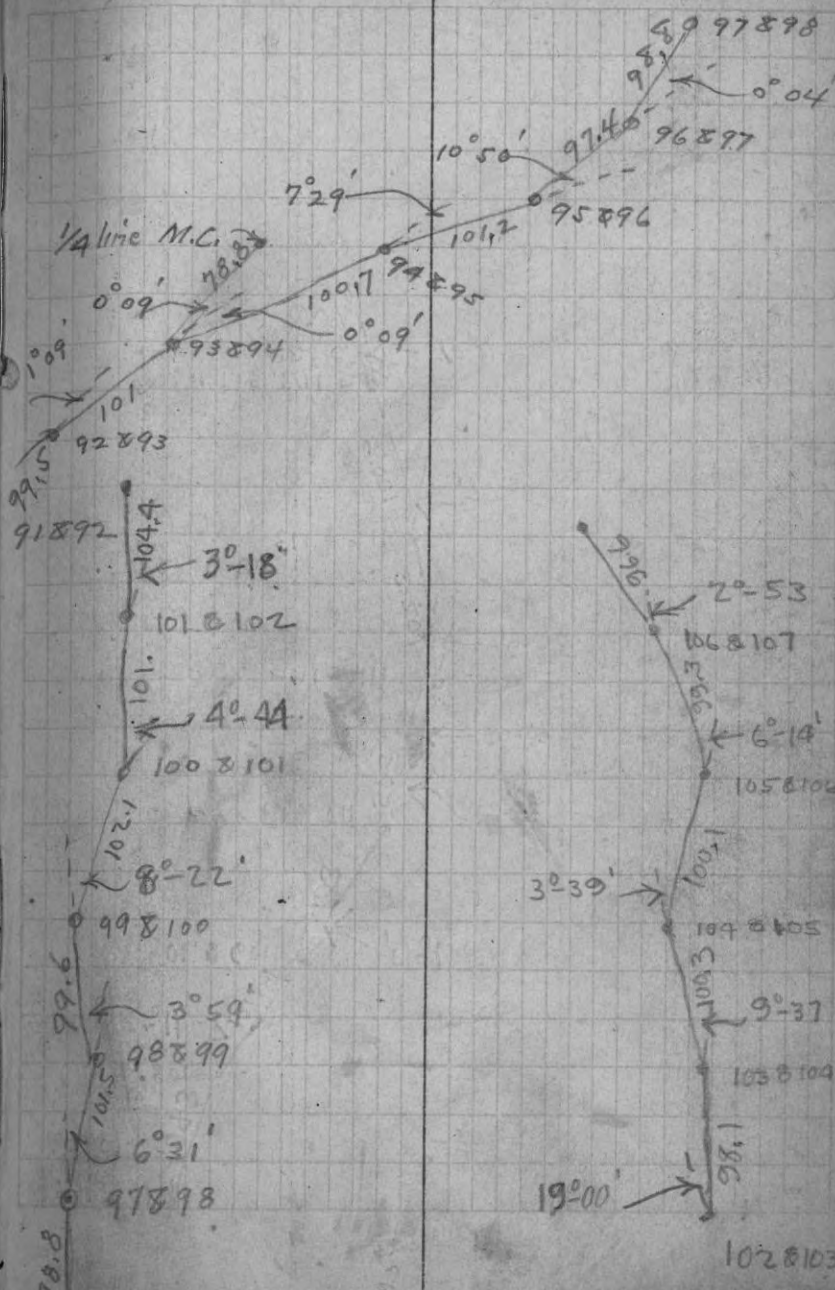 97&98
98,8
0°04'
97.4
96&97
10°50'
7°29'
95&96
101,2
1/4 line M.C.
78,8
94&95
100,7
0°09'
0°09'
93&94
1°09'
101
92&93
99,5
91&92
104.4
3°-18'
101&102
101.
4°-44'
100&101
102.1
8°-22'
99&100
99.6
3°59'
98&99
101.5
6°31'
97&98
98.8
99.6
2°-53
106&107
99.3
6°-14'
105&106
100,1
3°-39'
104&105
100.3
9°-37
103&104
98,1
19°-00'
102&103